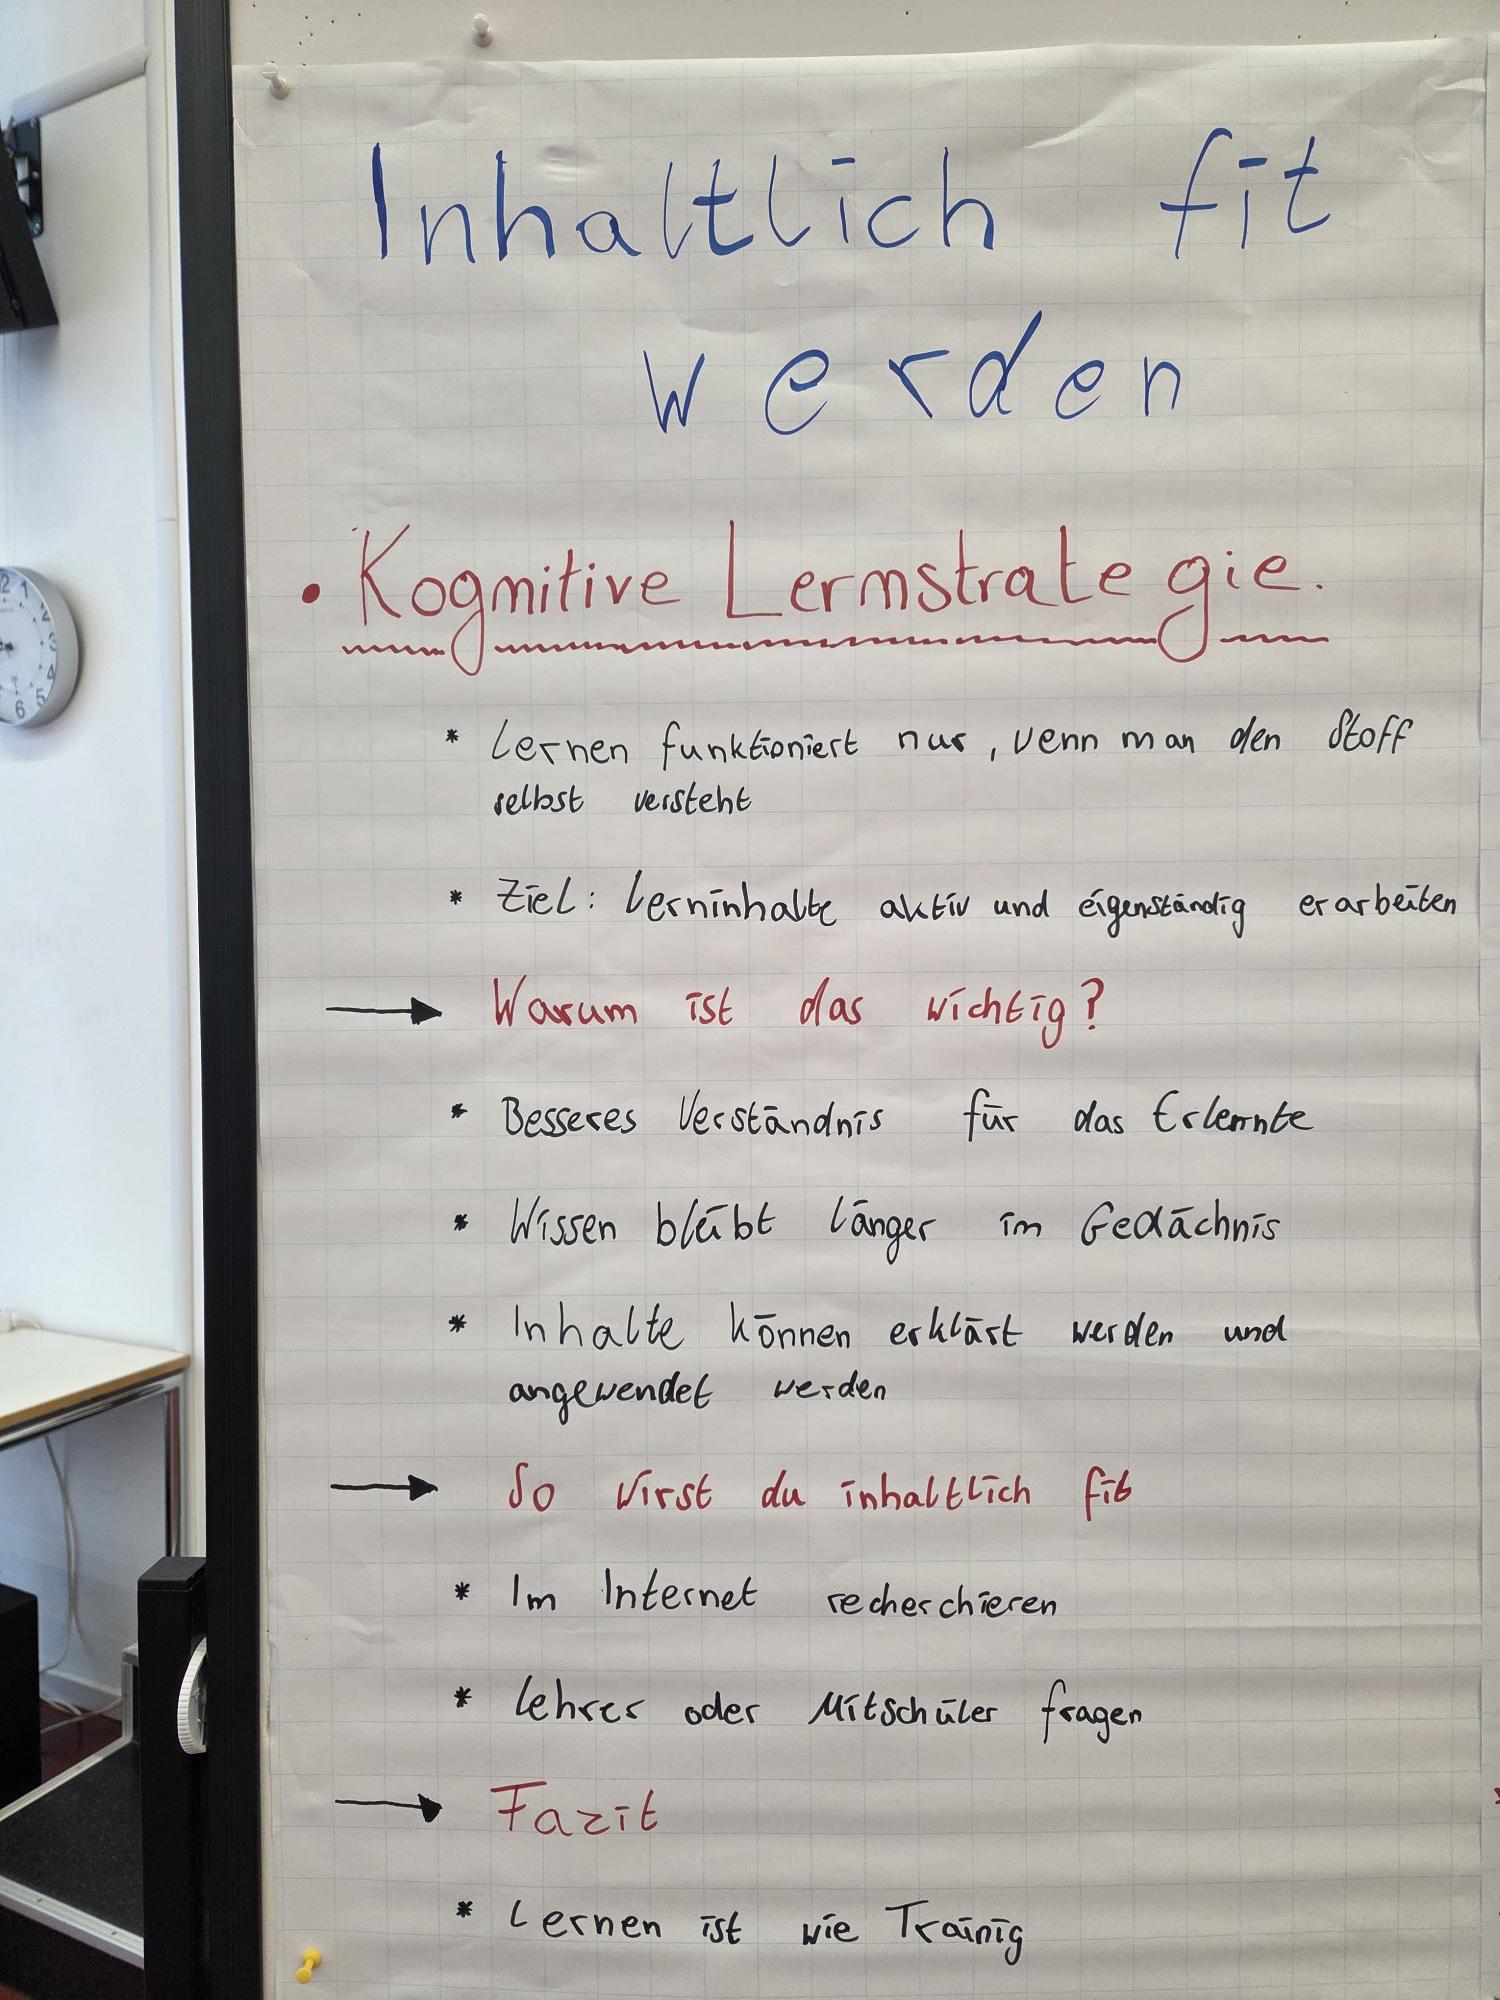 Inhaltlich fit
werden
• Kognitive Lernstrategie.
* Lernen funktioniert nur, wenn man den Stoff
selbst versteht
* Ziel: Lerninhalte aktiv und eigenständig erarbeiten
→ Warum ist das wichtig?
* Besseres Verständnis für das Erlernte
* Wissen bleibt länger im Gedächnis
* Inhalte können erklärt werden und
angewendet werden
→ So wirst du inhaltlich fit
* Im Internet recherchieren
* Lehrer oder Mitschüler fragen
→ Fazit
* Lernen ist wie Trainig